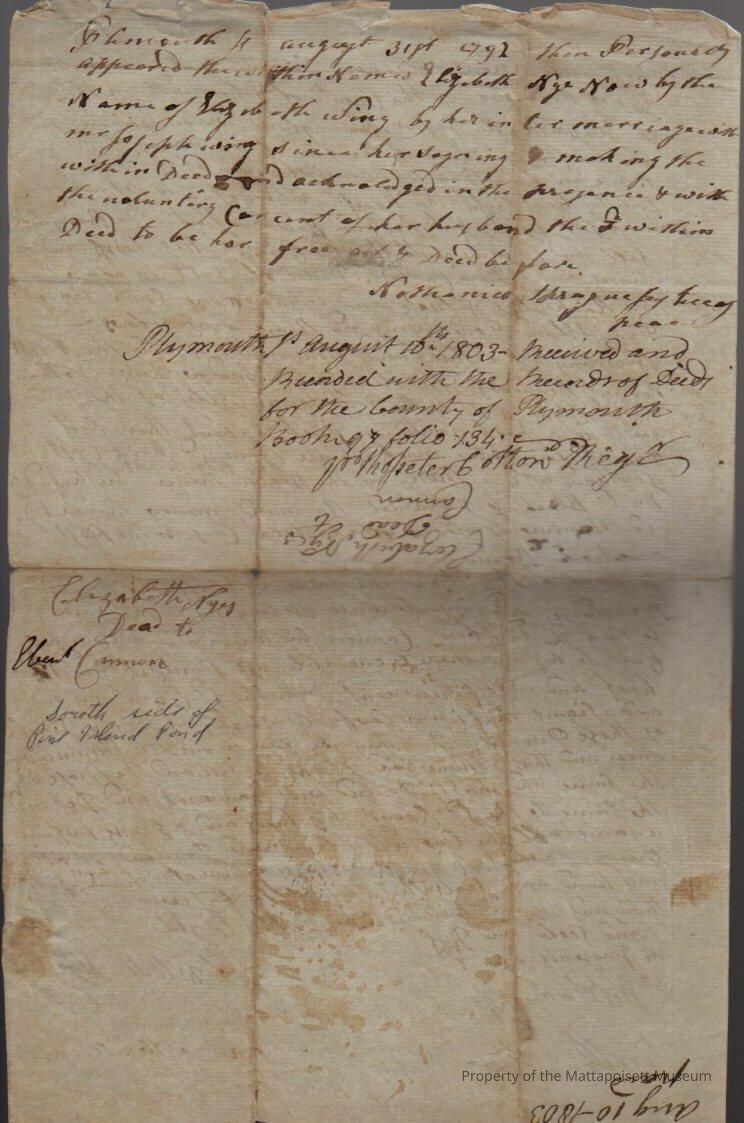 Plimouth ss august 31st 1792 then Personally
appeared the within Named Elizebeth Nye Now by the
Name of Elizebeth Wing by her inter marriage with
mr Joseph wing since her signing & making the
within Deed and acknoledged in the presence & with
the voluntery Concent of her husband the within
Deed to be her free act & Deed before
Nathaniel Sprague Jus
peac
Plymouth Ss August 10th 1803- Received and
Recorded with the Records of Deeds
for the County of Plymouth
Book 97 folio 134-
pr Rosseter Cotton Regr
Elizabeth Nyes
Dead
Cannon
Elizabeth Nyes
Dead to
Ebenr Cannon
South side of
Pine Island Pond
Property of the Mattapoisett Museum
Aug 10-1803